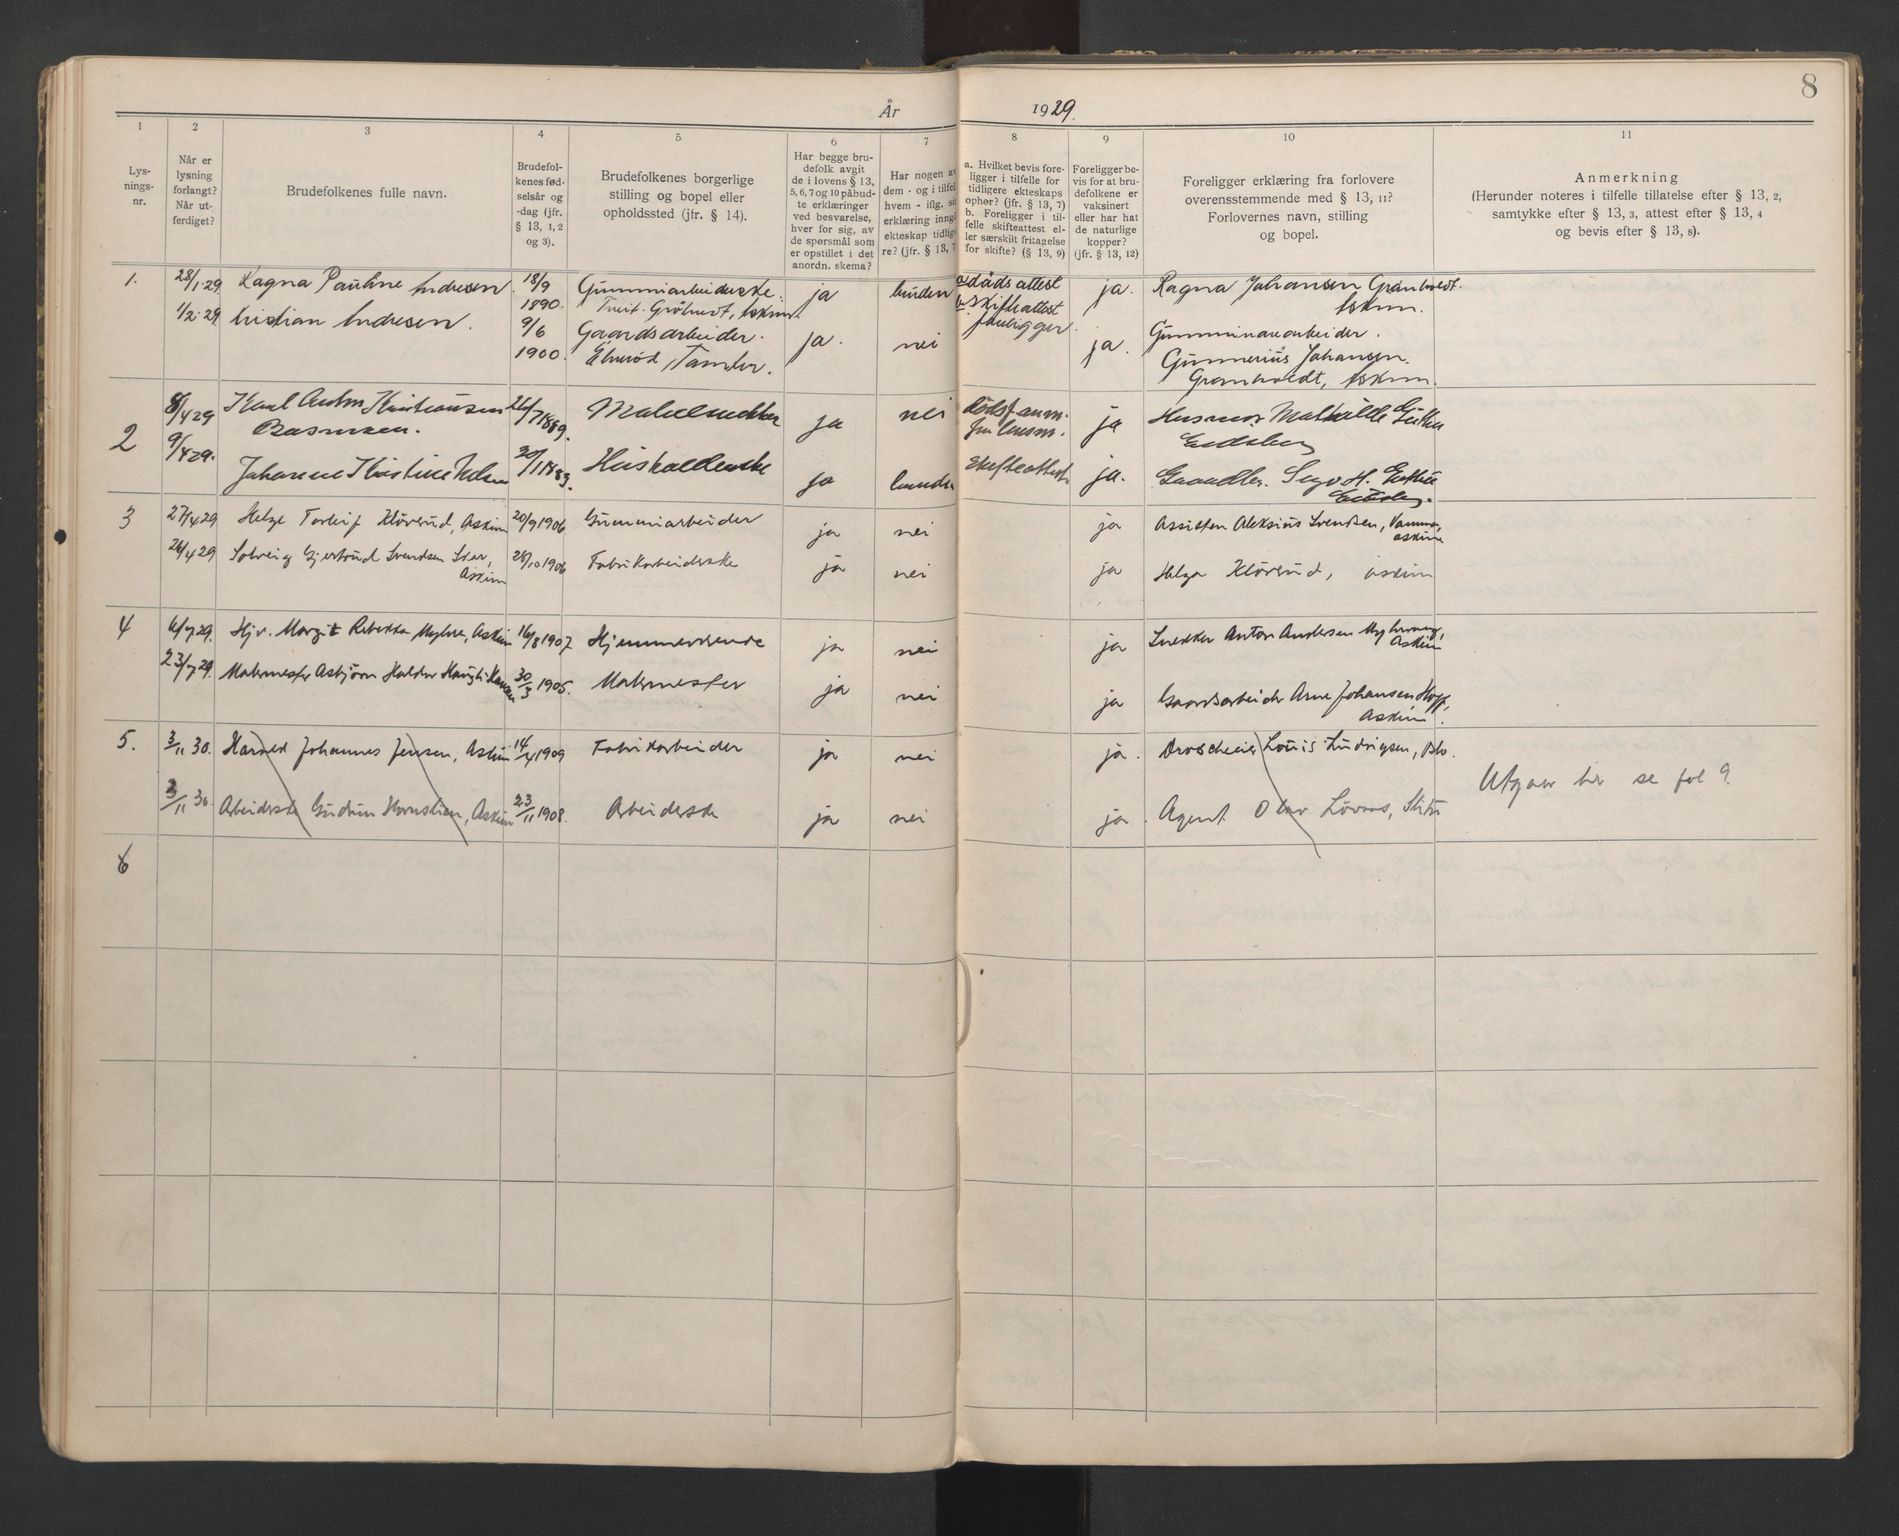 8
År 1929.
1 2 3 4 5 6 7 8 9 10 11
Lys-
nings-
nr.
Når er
lysning
forlangt?
Når ut-
ferdiget?
Brudefolkenes fulle navn.
Brudefol-
kenes fød-
selsår og
-dag (jfr.
§ 13, 1, 2
og 3).
Brudefolkenes borgerlige
stilling og bopel eller
opholdssted (jfr. § 14).
Har begge bru-
defolk avgit
de i lovens § 13,
5, 6, 7 og 10 påbud-
te erklæringer
ved besvarelse,
hver for sig, av
de spørsmål som
er opstillet i det
anordn. skema?
Har nogen av
dem - og i tilfel
hvem - iflg. si
erklæring inngå
ekteskap tidlig
re? (jfr. § 13, 7
a. Hvilket bevis fore-
ligger i tilfelle for
tidligere ekteskaps
ophør? (jfr. § 13, 7)
b. Foreligger i til-
felle skifteattest el-
ler særskilt fritagelse
for skifte? (§ 13, 9)
Foreligger be-
vis for at bru-
defolkene er
vaksinert
eller har hat
de naturlige
kopper?
(jfr. § 13, 12)
Foreligger erklæring fra forlovere
overensstemmende med § 13, 11?
Forlovernes navn, stilling
og bopel.
Anmerkning
(Herunder noteres i tilfelle tillatelse efter § 13, 2,
samtykke efter § 13, 3, attest efter § 13, 4
og bevis efter § 13, 8).
1. 28/1.29 Ragna Pauline Andresen. 18/9 Gummiarbeiderske. ja bruden a. dødsattest ja. Ragna Johansen Granholdt.
1890. Askim b. skifteattest Askim.
1/2.29 Kristian Andresen. 9/6 Gaardsarbeider. ja. nei foreligger. ja. Gummivarearbeider.
1900. Tomter. Gunnerius Johansen.
Granholdt, Askim.
2 8/4 29 Karl Anton Kristiansen 26/7 1889. ja nei ja Husmor Mathilde
Rasmussen. Eidsberg
9/4 29. Johanne Kristine 20/1 1883. Husholderske ja bruden Skifteattest ja. Gaardbr.
Eidsberg.
3 27/4 29 Helge Torleif Kløvrud, Askim 20/9 1906 Gummiarbeider ja nei ja Assistent Aleksius Svendsen, Vamma,
Askim
26/4 29 Solveig Gjertrud Svendsen 28/10 1906 Fabrikarbeiderske ja nei ja Helga Kløvrud, Askim
Askim
4 6/7 29. Hjv. Margit Rebekka Myhre, Askim 16/8 1907 Hjemmeværende ja nei ja Snekker Anton Andersen
Askim
23/7 29. Malermester Asbjørn Haldor 30/3 1905. Malermester ja nei ja Gaardsarbeider Arne Johansen
Askim
5. 3/11 30. Harald Johannes Jensen, Askim 14/4 1909 Fabrikarbeider ja nei ja. Louis Ludvigsen,
3/11 30. Arbeiderske Gudrun Hornslien, Askim 23/11 1908. Arbeiderske ja nei ja. Agent Olav Løvaas,
Utgaar her se fol 9.
6